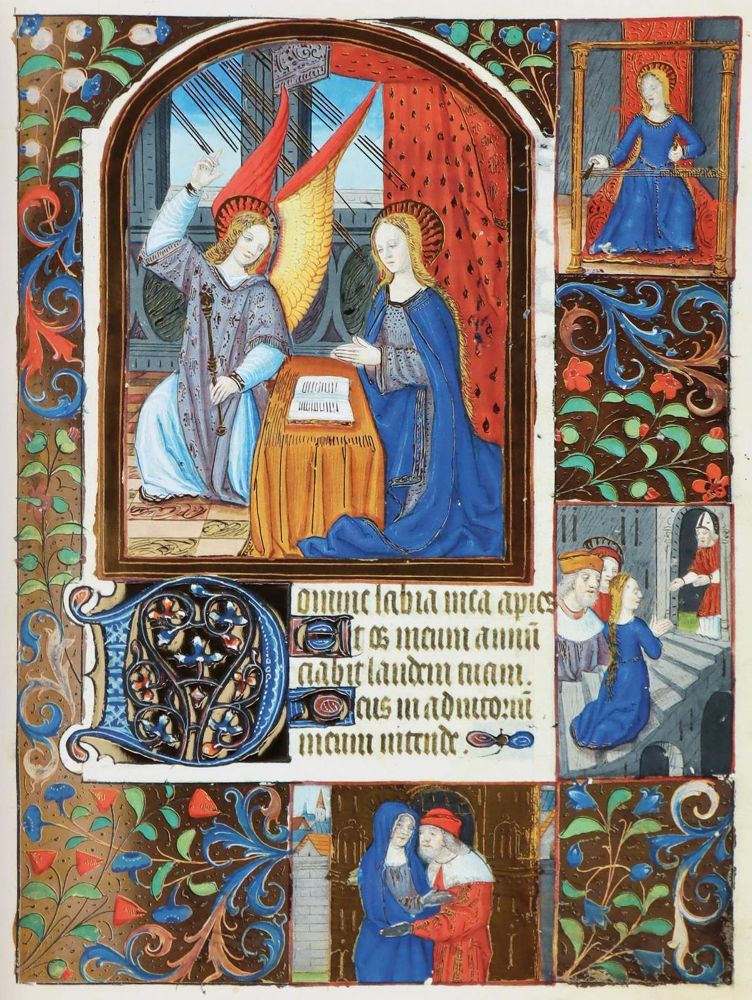 Domine labia mea apies
Et os meum annū
ciabit laudem tuam.
Deus in adiutoriū
meum intende.